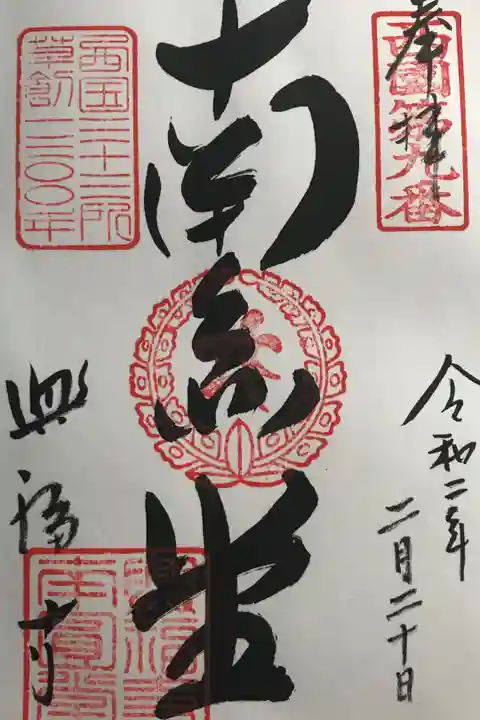 奉拝
西国第九番
令和二年
二月二十日
南円堂
西国三十三所
草創一三〇〇年
興福寺